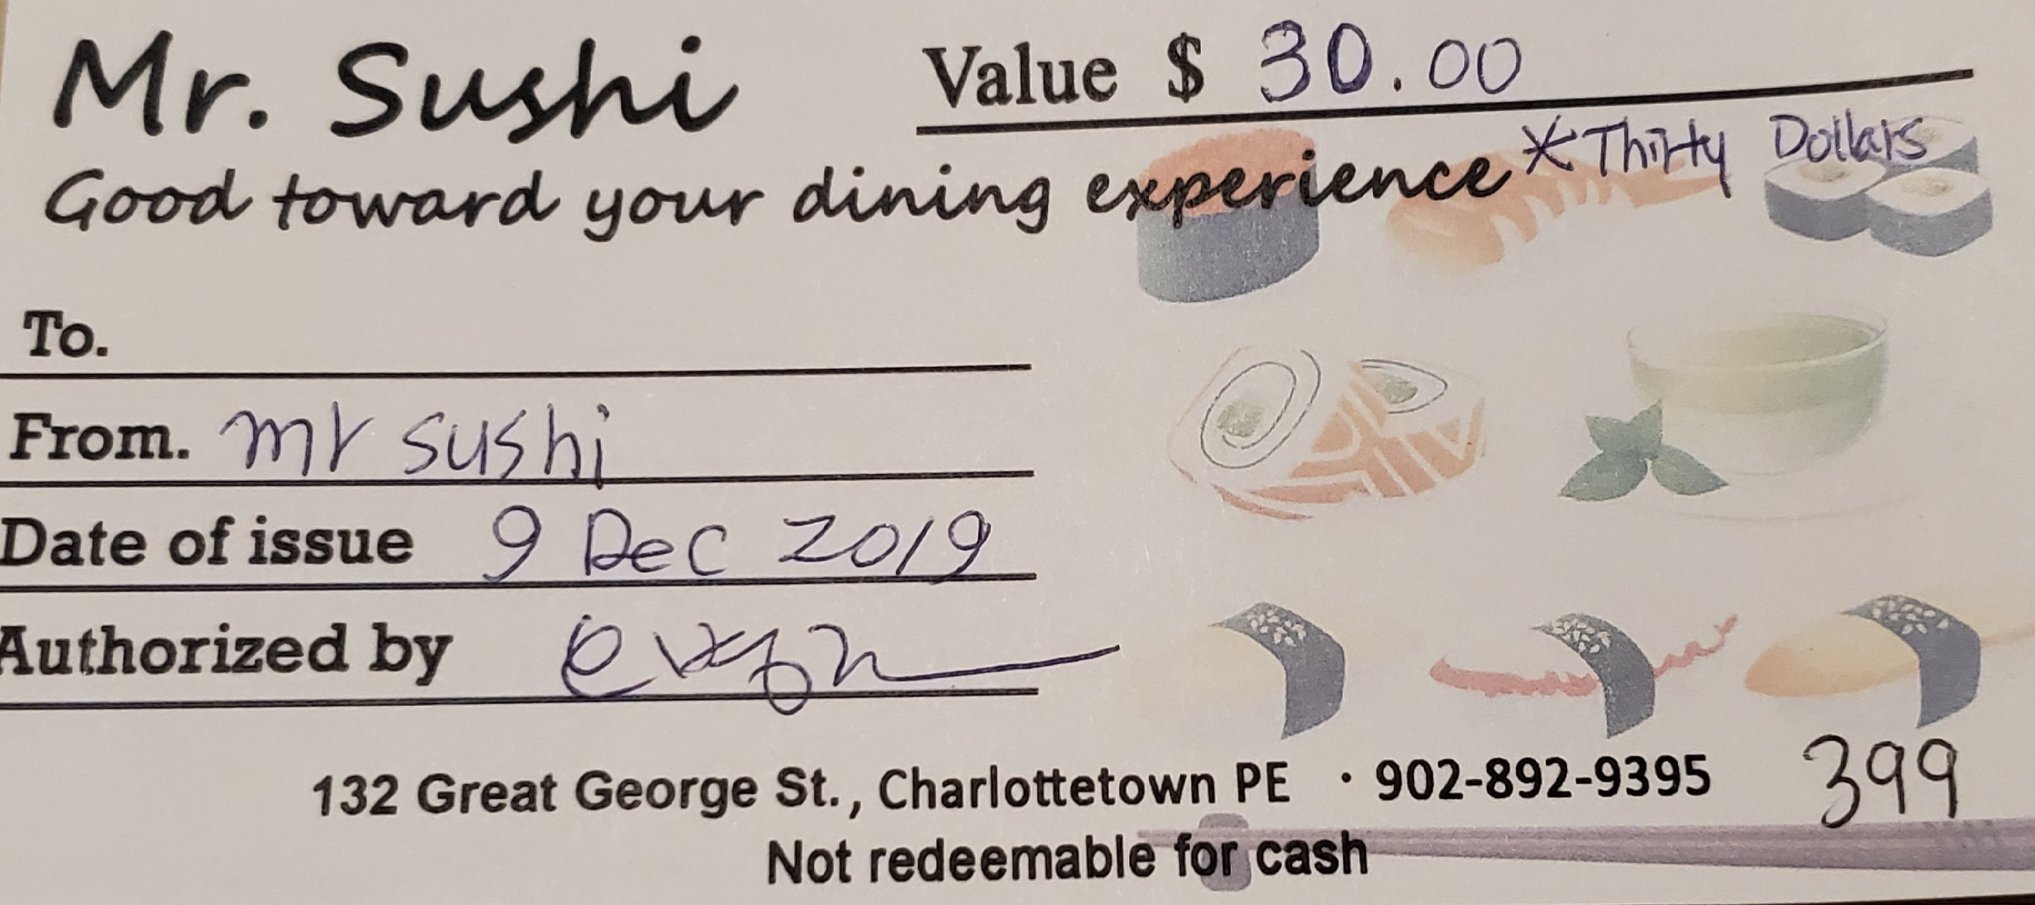 Mr. Sushi
Value $ 30.00
Good toward your dining experience *Thirty Dollars
To.
From. mr sushi
Date of issue 9 Dec 2019
Authorized by
132 Great George St., Charlottetown PE · 902-892-9395 399
Not redeemable for cash